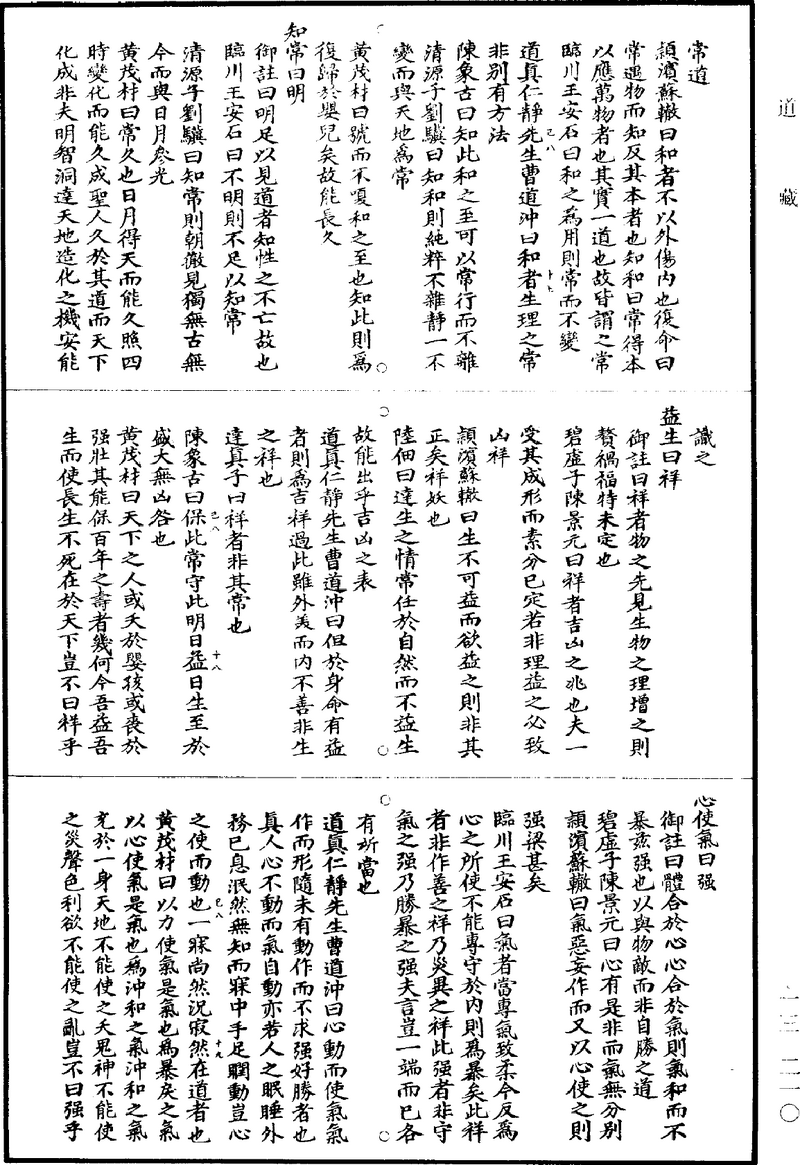 道藏
常道
潁濱蘇轍曰和者不以外傷內也復命曰
常遇物而知反其本者也知和曰常得本
以應萬物者也其實一道也故皆謂之常
臨川王安石曰和之為用則常而不變
道真仁靜先生曹道沖曰和者生理之常
非別有方法
陳象古曰知此和之至可以常行而不離
清源子劉驥曰知和則純粹不雜靜一不
變而與天地為常
黃茂材曰號而不嗄和之至也知此則為
復歸於嬰兒矣故能長久
知常曰明
御註曰明足以見道者知性之不亡故也
臨川王安石曰不明則不足以知常
清源子劉驥曰知常則朝徹見獨無古無
今而與日月參光
黃茂材曰常久也日月得天而能久照四
時變化而能久成聖人久於其道而天下
化成非夫明智洞達天地造化之機安能
識之
益生曰祥
御註曰祥者物之先見生物之理增之則
贅禍福特未定也
碧虛子陳景元曰祥者吉凶之兆也夫一
受其成形而素分已定若非理益之必致
凶祥
潁濱蘇轍曰生不可益而欲益之則非其
正矣祥妖也
陸佃曰達生之情常任於自然而不益生
故能出乎吉凶之表
道真仁靜先生曹道沖曰但於身命有益
者則為吉祥過此雖外美而內不善非生
之祥也
達真子曰祥者非其常也
陳象古曰保此常守此明日益日生至於
盛大無凶咎也
黃茂材曰天下之人或夭於嬰孩或喪於
强壯其能保百年之壽者幾何今吾益吾
生而使長生不死在於天下豈不曰祥乎
心使氣曰强
御註曰體合於心心合於氣則氣和而不
暴茲强也以與物敵而非自勝之道
碧虛子陳景元曰心有是非而氣無分別
潁濱蘇轍曰氣惡妄作而又以心使之則
强梁甚矣
臨川王安石曰氣者當專氣致柔今反為
心之所使不能專守於內則為暴矣此祥
者非作善之祥乃災異之祥此强者非守
氣之强乃勝暴之强夫言豈一端而已各
有所當也
道真仁靜先生曹道沖曰心動而使氣氣
作而形隨未有動作而不求强好勝者也
真人心不動而氣自動亦若人之眠睡外
務已息泯然無知而寐中手足瞤動豈心
之使而動也一寐尚然況寂然在道者也
黃茂材曰以力使氣是氣也為暴戾之氣
以心使氣是氣也為沖和之氣沖和之氣
充於一身天地不能使之夭鬼神不能使
之災聲色利欲不能使之亂豈不曰强乎